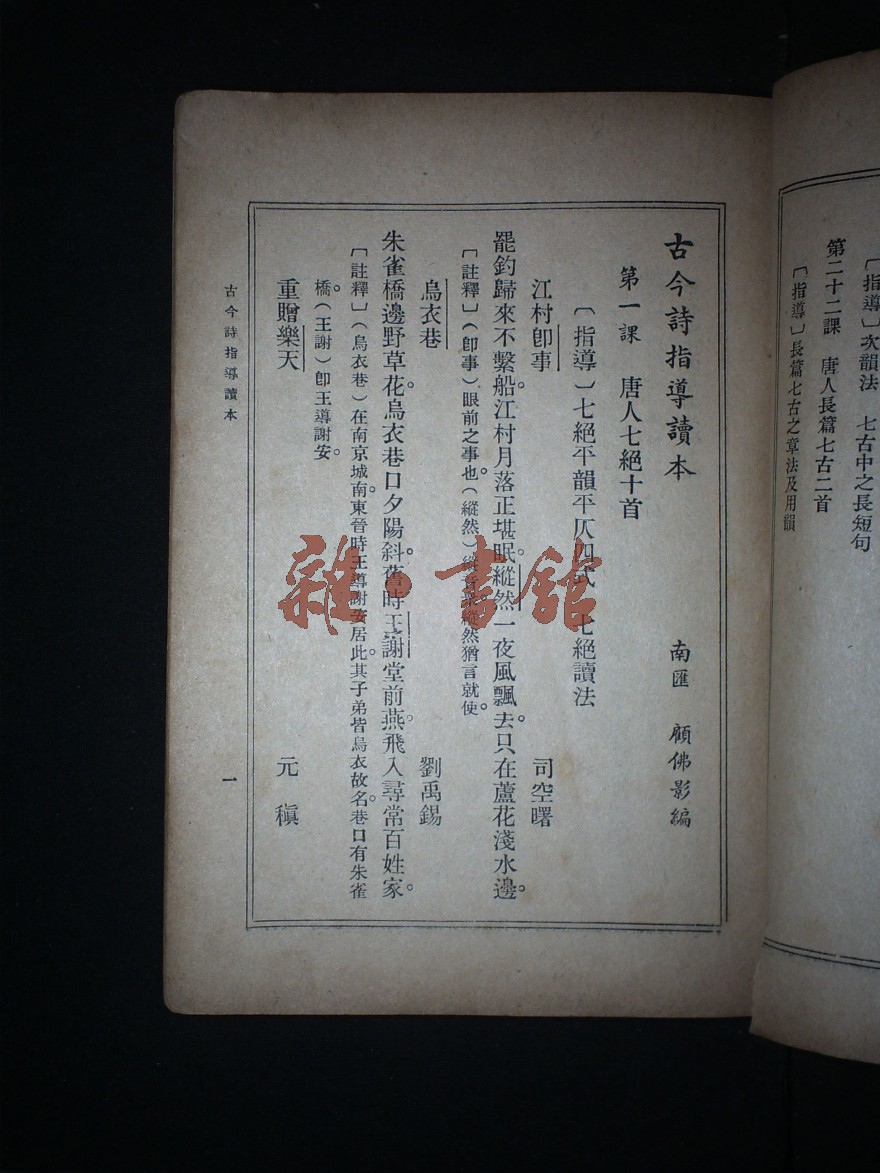 〔指導〕次韻法　七古中之長短句
第二十二課　唐人長篇七古二首
〔指導〕長篇七古之章法及用韻
古今詩指導讀本　南匯　顧佛影編
第一課　唐人七絕十首
〔指導〕七絕平韻平仄四式　七絕讀法
江村卽事　司空曙
罷釣歸來不繫船。江村月落正堪眠。縱然一夜風飄去。只在蘆花淺水邊。
〔註釋〕（卽事）眼前之事也。（縱然）縱然猶言就使。
烏衣巷　劉禹錫
朱雀橋邊野草花。烏衣巷口夕陽斜。舊時王謝堂前燕。飛入尋常百姓家。
〔註釋〕（烏衣巷）在南京城南。東晉時王導謝安居此。其子弟皆烏衣故名。巷口有朱雀
橋。（王謝）卽王導謝安。
重贈樂天　元稹
古今詩指導讀本　一
雜·書舘